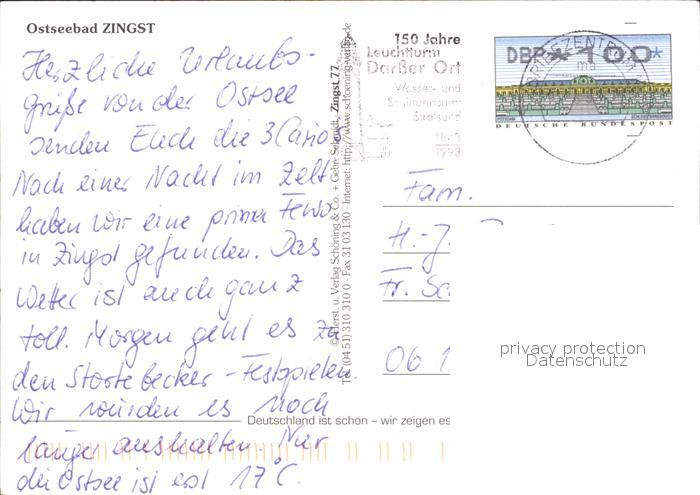 Ostseebad ZINGST
Herzliche Urlaubs-
grüße von der Ostsee
senden Euch die 3
Nach einer Nacht im Zelt
haben wir eine prima Fewo
in Zingst gefunden. Das
Wetter ist auch ganz
toll. Morgen geht es zu
den Störtebecker-Festspielen.
Wir würden es noch
länger aushalten. Nur
die Ostsee ist erst 17°C.
Deutschland ist schön – wir zeigen es
Tel. (04 51) 310 310 0 · Fax 31 03 130 · Internet: http://www.schoening-verlag.de
u. Verlag Schöning & Co. + Gebr. Schmidt, Zingst 77
150 Jahre
Leuchtturm
Darßer Ort
Wasser- und
Schiffahrtsamt
Stralsund
1848
1998
DBP * 100 *
DEUTSCHE BUNDESPOST
Fam.
H.-J.
Fr.
06
privacy protection
Datenschutz